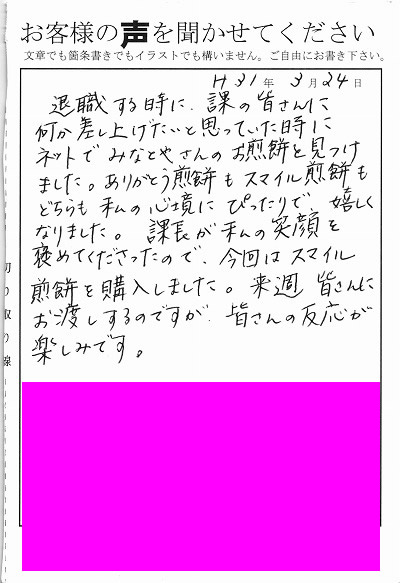 お客様の声を聞かせてください
文章でも箇条書きでもイラストでも構いません。ご自由にお書き下さい。
H31年 3月24日
退職する時に、課の皆さんに
何か差し上げたいと思っていた時に
ネットでみなとやさんのお煎餅を見つけ
ました。ありがとう煎餅もスマイル煎餅も
どちらも私の心境にぴったりで、嬉しく
なりました。課長が私の笑顔を
褒めてくださったので、今回はスマイル
煎餅を購入しました。来週 皆さんに
お渡しするのですが、皆さんの反応が
楽しみです。
切り取り線